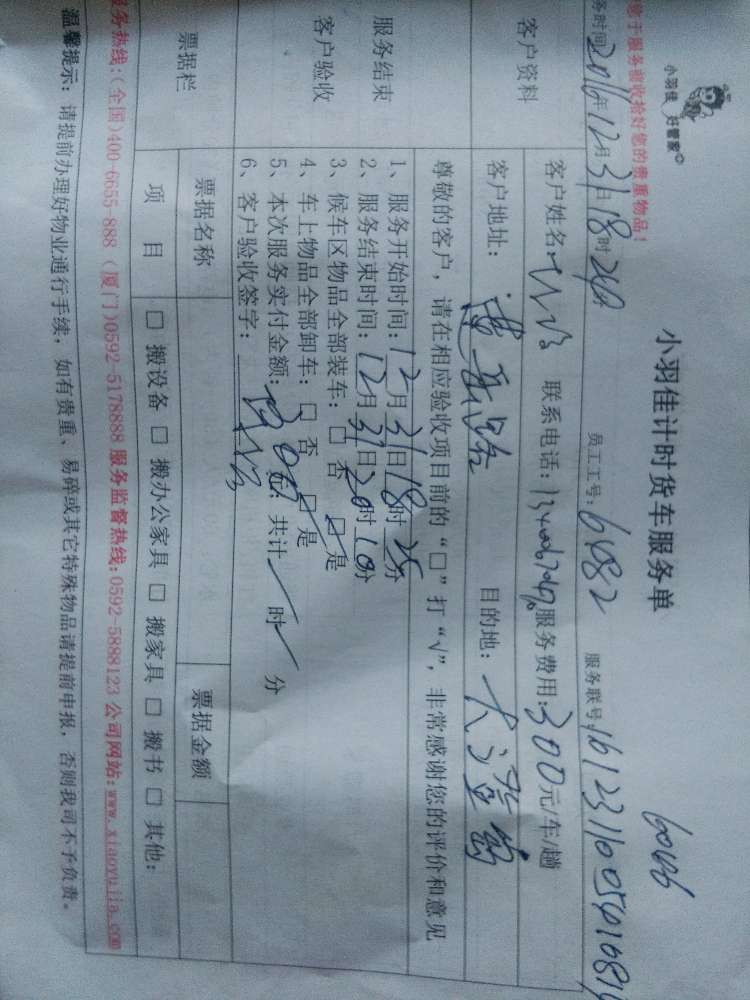 小羽佳 好管家
小羽佳计时货车服务单
于服务前收拾好您的贵重物品！
务时间 2016年12月31日18时
员工工号：6082
服务联号：
客户资料
客户姓名：
联系电话：
服务费用：300元/车/趟
客户地址：
目的地：
尊敬的客户，请在相应验收项目前的“□”打“√”，非常感谢您的评价和意见
服务结束
客户验收
1、服务开始时间：12月31日18时25分
2、服务结束时间：12月31日20时10分
3、候车区物品全部装车：□ 否 □ 是
4、车上物品全部卸车：□ 否 □ 是
5、本次服务实付金额：300元；共计 时 分
6、客户验收签字：
票据栏
票据名称
票据金额
项 目
□ 搬设备 □ 搬办公家具 □ 搬家具 □ 搬书 □ 其他：
服务热线：(全国)400-6655-888 (厦门)0592-5178888 服务监督热线：0592-5888123 公司网站：www.xiaoyujia.com
温馨提示：请提前办理好物业通行手续，如有贵重、易碎或其它特殊物品请提前申报，否则我司不予负责。